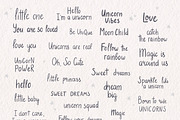 little one
You are so loved
love you
UniCorn
POWeR
hello
little baby
I don't care,
Hello
I'm a unicorn
Be UniQue
Unicorns are real
Oh So Cute
little princess
dream big
unicorn squad
Magic
Unicorn
Vibes
Moon Child
Follow the
rainbow
Sweet dreams
SWEET
DREAMS
Follow
the rainbow
love
catch
the rainbow
Magic is
around us
Sparkle like
a unicorn
Born to be
UNICORNS